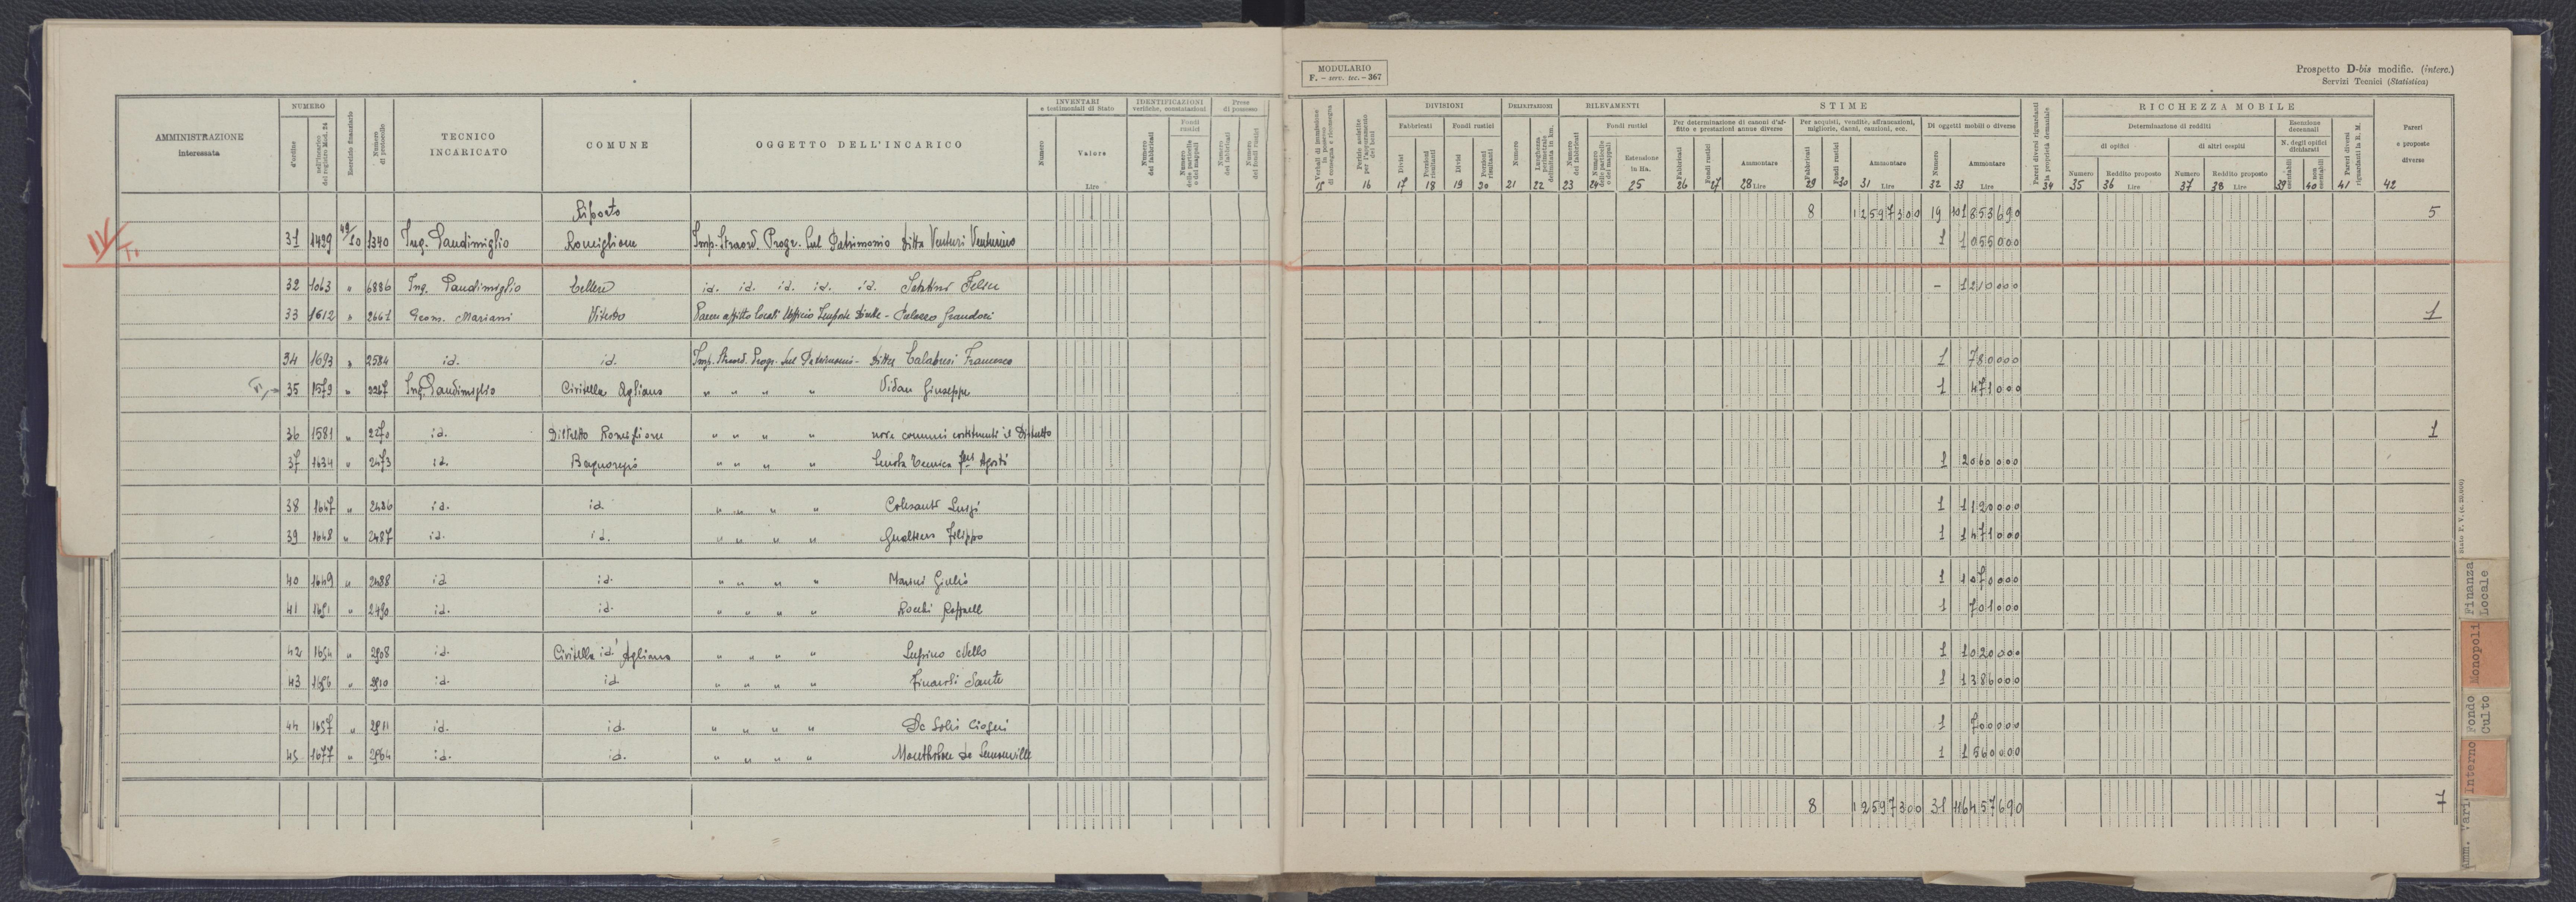 MODULARIO
F. - serv. tec. - 367
Prospetto D-bis modific. (interc.)
Servizi Tecnici (Statistica)
AMMINISTRAZIONE interessata
NUMERO
d'ordine
dell'incarico del registro Mod. 24
Esercizio finanziario
Numero di protocollo
TECNICO INCARICATO
COMUNE
OGGETTO DELL'INCARICO
INVENTARI e testimoniali di Stato
Numero
Valore
Lire
IDENTIFICAZIONI verifiche, constatazioni
Numero dei fabbricati
Fondi rustici
Numero delle particelle o dei mappali
Prese di possesso
Numero dei fabbricati
Numero dei fondi rustici
Verbali di immissione in possesso di consegna e riconsegna
15
Perizie assistite per l'appuramento dei beni
16
DIVISIONI
Fabbricati
Fondi rustici
Divisi 17
Porzioni risultanti 18
Divisi 19
Porzioni risultanti 20
DELIMITAZIONI
Numero 21
Lunghezza perimetrale delimitata in km. 22
RILEVAMENTI
Numero dei fabbricati 23
Fondi rustici
Numero delle particelle o dei mappali 24
Estensione in Ha. 25
STIME
Per determinazione di canoni d'affitto e prestazioni annue diverse
Fabbricati 26
Fondi rustici 27
Ammontare 28 Lire
Per acquisti, vendite, affrancazioni, migliorie, danni, cauzioni, ecc.
Fabbricati 29
Fondi rustici 30
Ammontare 31 Lire
Di oggetti mobili o diverse
Numero 32
Ammontare 33 Lire
Pareri diversi riguardanti la proprietà demaniale 34
RICCHEZZA MOBILE
Determinazione di redditi
di opifici
Numero 35
Reddito proposto 36 Lire
di altri cespiti
Numero 37
Reddito proposto 38 Lire
Esenzione decennali
N. degli opifici dichiarati
esentabili 39
non esentabili 40
Pareri diversi riguardanti la R. M. 41
Pareri e proposte diverse
42
Riporto 8 12597300 19 101853690 5
IV/T.
31 1429 49/50 1340 Ing. Pandimiglio Ronciglione Imp. Straord. Progr. Sul Patrimonio Ditta Venturi Venturino 1 1055000
32 1063 " 6886 Ing. Pandimiglio Cellere id. id. id. id. id. Felice - 1210000
33 1612 " 2661 Geom. Mariani Viterbo Parere affitto locali Ufficio Imposte Dirette - Palazzo Grandori 1
34 1693 " 2584 id. id. Imp. Straord. Progr. Sul Patrimonio - Ditta Calabresi Francesco 1 780000
35 1579 " 2267 Ing. Pandimiglio Civitella Agliano " " " " Vidau Giuseppe 1 471000
36 1581 " 2270 id. Distretto Ronciglione " " " " nove comuni costituenti il Distretto 1
37 1634 " 2473 id. Bagnoregio " " " " Scuola Tecnica Agosti 1 2060000
38 1647 " 2486 id. id " " " " Colesanti Luigi 1 1120000
39 1648 " 2487 id. id. " " " " Gualtieri Filippo 1 1471000
40 1649 " 2488 id id. " " " " Marini Giulio 1 1070000
41 1651 " 2490 id. id. " " " " Rocchi Raffaell 1 701000
42 1654 " 2508 id. Civitella d'Agliano " " " " Nello 1 1020000
43 1656 " 2510 id. id " " " " Sante 1 1386000
44 1657 " 2511 id. id. " " " " De Solis 1 700000
45 1677 " 2564 id. id. " " " " 1 1560000
8 12597300 31 116457690 7
Stato P. V. (c. 20.000)
Finanza Locale
Monopoli
Fondo Culto
Interno
Amm. Varie